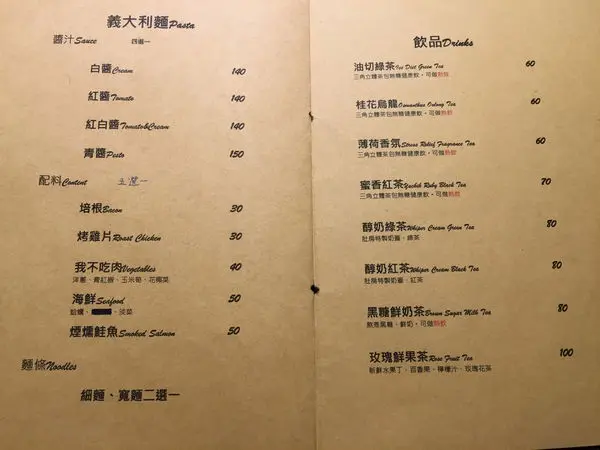 義大利麵Pasta
醬汁Sauce 四選一
白醬Cream 140
紅醬Tomato 140
紅白醬Tomato&Cream 140
青醬Pesto 150
配料Content 五選一
培根Bacon 30
烤雞片Roast Chicken 30
我不吃肉Vegetables 40
洋蔥、青紅椒、玉米筍、花椰菜
海鮮Seafood 50
蛤蠣、淡菜
煙燻鮭魚Smoked Salmon 50
麵條Noodles
細麵、寬麵二選一
飲品Drinks
油切綠茶Ice Diet Green Tea 60
三角立體茶包無糖健康飲，可做熱飲
桂花烏龍Osmanthus Oolong Tea 60
三角立體茶包無糖健康飲，可做熱飲
薄荷香氛Stress Relief Fragrance Tea 60
三角立體茶包無糖健康飲，可做熱飲
蜜香紅茶Yuchih Ruby Black Tea 70
三角立體茶包無糖健康飲，可做熱飲
醇奶綠茶Whiper Cream Green Tea 80
肚房特製奶蓋、綠茶
醇奶紅茶Whiper Cream Black Tea 80
肚房特製奶蓋、紅茶
黑糖鮮奶茶Brown Sugar Milk Tea 80
熬煮黑糖、鮮奶，可做熱飲
玫瑰鮮果茶Rose Fruit Tea 100
新鮮水果丁、百香果、檸檬汁、玫瑰花茶